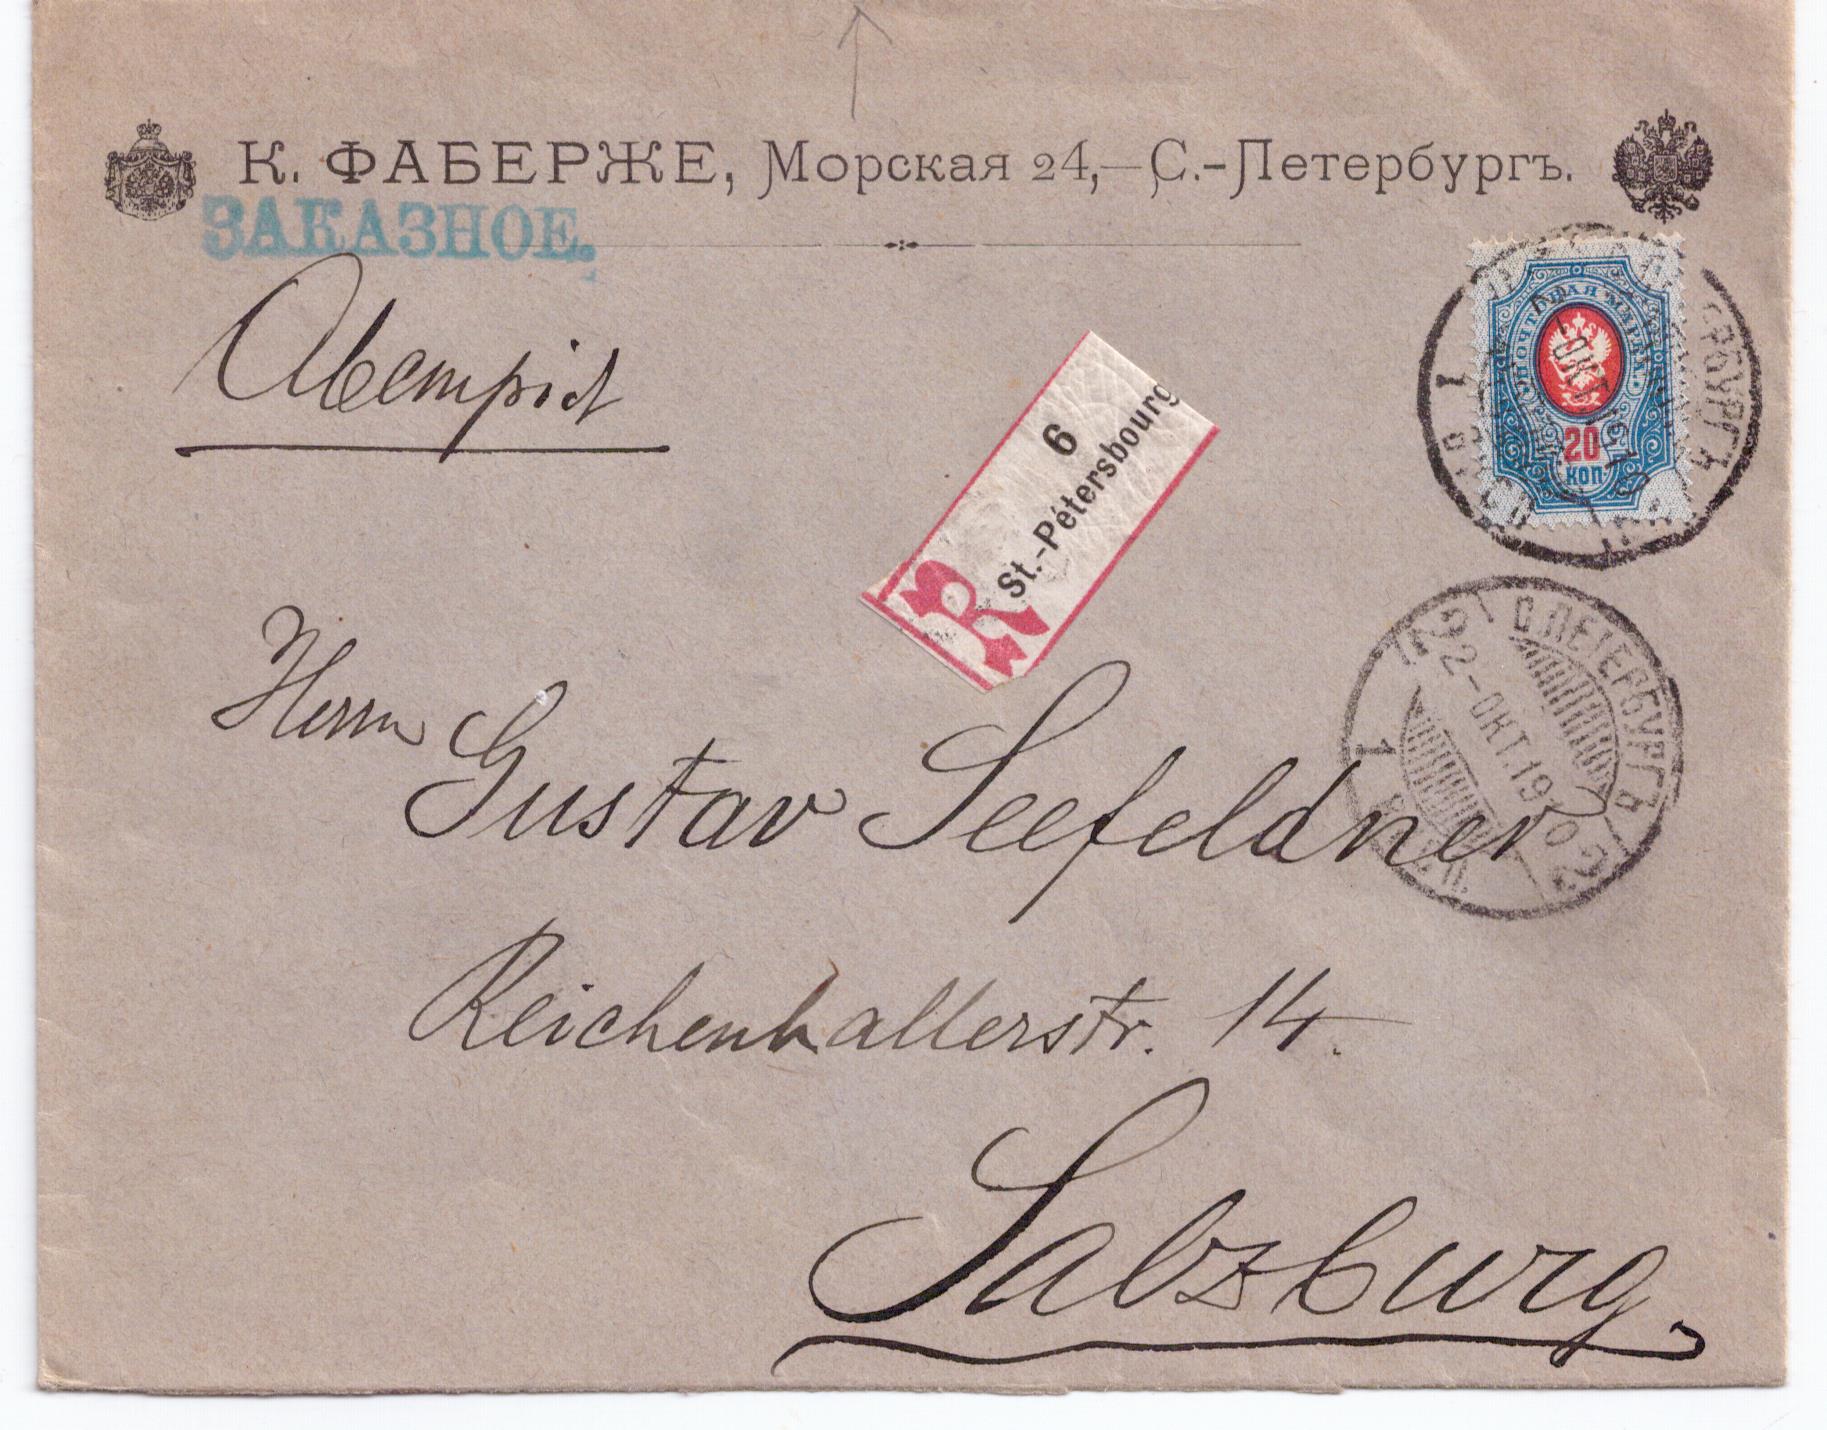 К. ФАБЕРЖЕ, Морская 24,—С.-Петербургъ.
ЗАКАЗНОЕ.
ПОЧТОВАЯ МАРКА
20
КОП
R
6
St.-Pétersbourg
С.ПЕТЕРБУРГЪ
22-ОКТ.1910
1
Herrn
Gustav Seefeldner
Reichenhallerstr. 14.
Salzburg.